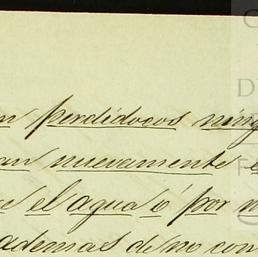 n perdidoços ning
an nuevamente e
e el agua ó por
ademas de no con